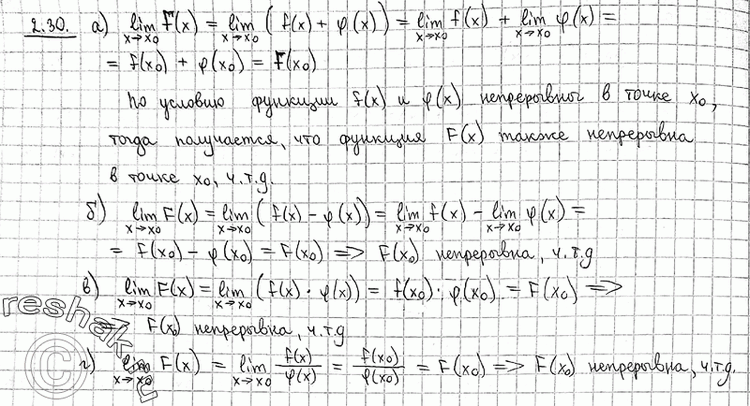 2.30. а) lim x→x₀ F(x) = lim x→x₀ (f(x) + φ(x)) = lim x→x₀ f(x) + lim x→x₀ φ(x) =
= f(x₀) + φ(x₀) = F(x₀)
По условию функции f(x) и φ(x) непрерывны в точке x₀,
тогда получается, что функция F(x) также непрерывна
в точке x₀, ч.т.д.
б) lim x→x₀ F(x) = lim x→x₀ (f(x) - φ(x)) = lim x→x₀ f(x) - lim x→x₀ φ(x) =
= f(x₀) - φ(x₀) = F(x₀) => F(x₀) непрерывна, ч.т.д
в) lim x→x₀ F(x) = lim x→x₀ (f(x) · φ(x)) = f(x₀) · φ(x₀) = F(x₀) =>
=> F(x₀) непрерывна, ч.т.д
г) lim x→x₀ F(x) = lim x→x₀ f(x)/φ(x) = f(x₀)/φ(x₀) = F(x₀) => F(x₀) непрерывна, ч.т.д.